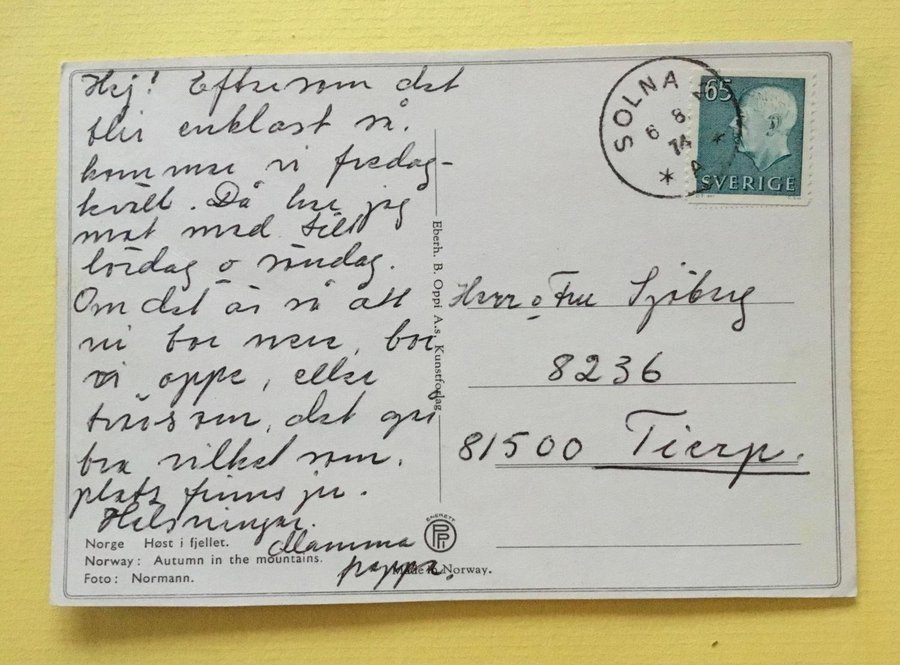 Hej! Eftersom det
blir enklast så.
kommer vi fredag-
kväll. Då har jag
mat med till
lördag o söndag.
Om det är så att
ni bor nere, bor
vi oppe, eller
tvärsom, det går
bra vilket som.
plats finns ju.
Hälsningar.
Mamma
pappa.
Norge Høst i fjellet.
Norway: Autumn in the mountains.
Foto: Normann.
Eberh. B. Oppi A.s. Kunstforlag
ENERETT
Made in Norway.
SOLNA 1
6 8
74
* A *
65
SVERIGE
Herr o Fru Sjöberg
8236
81500 Tierp.